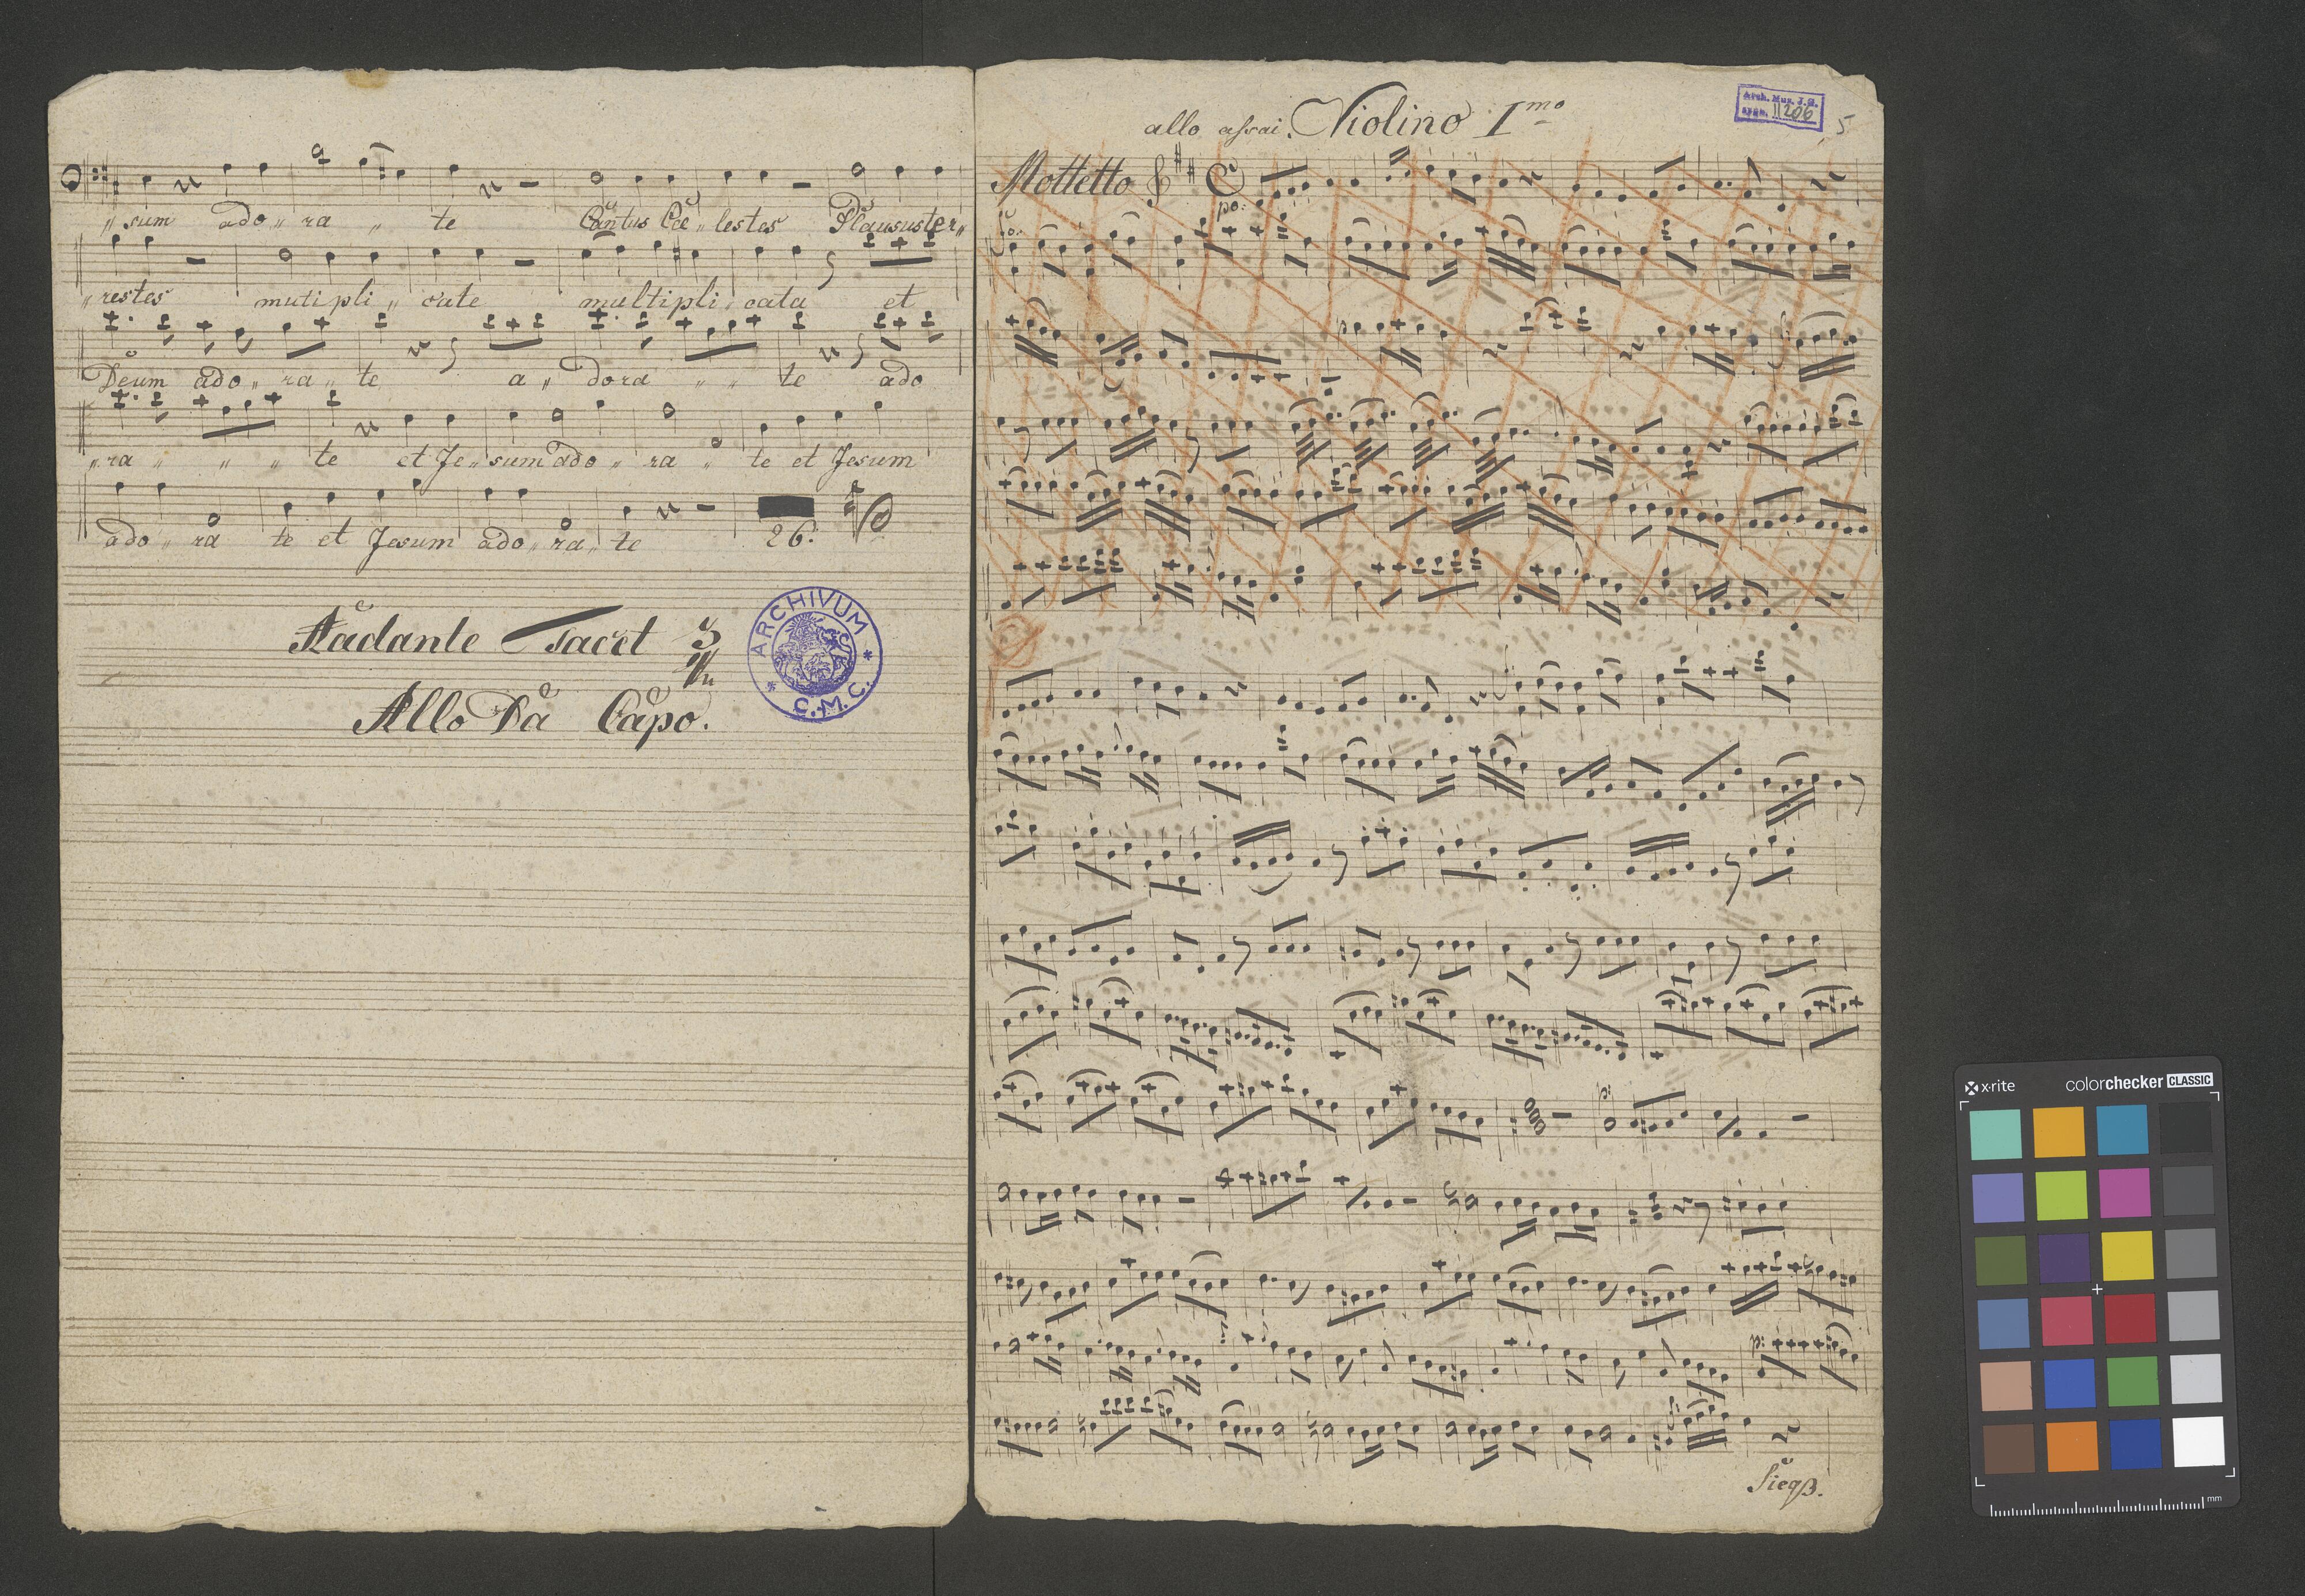 „ sum ado „ ra „ te Cantus Cae „ lestes Plausus ter „
„ restes muti pli „ cate multipli „ cata et
Deum ado „ ra „ te a „ dora „ „ te ado
„ ra „ „ „ te et Je „ sum ado „ ra „ te et Jesum
ado „ ra te et Jesum ado „ ra „ te 26.
Aadante Tacet
Allo Da Capo.
ARCHIVUM C.M.C.
allo assai. Violino I mo
Arch. Mus. J. G.
sygn. II 206
5
Mottetto
po:
fo:
p
p:
p:
x-rite colorchecker CLASSIC
mm